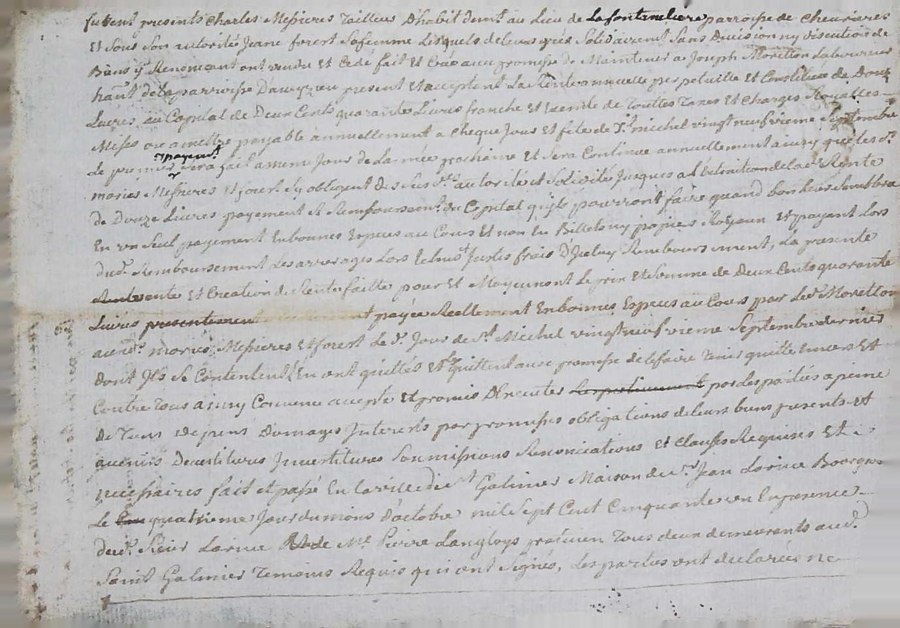 furent presents Charles Messieres Tailleur D'habit demt. au Lieu de Lafontaneliere parroisse de Chevrieres
Et sous son autorité Jeane forest sa femme Lesquels de leurs grés Solidairemt. Sans Division ny discution de
Biens y Renonçant ont vendu Et Cedé fait Et Créé avec promesse de Maintenir a Joseph Moretton Laboureur
habt. de la parroisse present Et acceptent La Rente annuelle perpetuelle Et Constituée de Douze
Livres au Capital de Deux Cents quarante Livres franche et Exemte de touttes Taxes Et Charges Royalles
Mises ou a mettre payable annuellement a Cheque Jour Et fete de St. michel vingt neufvieme Septembre
Le premier payemt. sera fait a meme Jour de Lannée prochaine Et sera Continué annuellement ainsy que les d.
mariés Messieres Et forest s'y obligent de autorité et Solidité Jusques a l'extinction de lad. Rente
de Douze Livres payement et Remboursement du Capital qu'ils pourront faire quand bon leur Semblera
En un Seul payement En bonnes Especes au Cours et non En Billets ny papiers Royaux Et payant Lors
dud. Remboursement Les arrerages Lors Echus frais D'iceluy Remboursement, La presente
vente Et Creation de Rente faitte pour Et Moyennant Le prix Et Somme de Deux Cents quarante
Livres payée Reellement En bonnes Especes au Cours par Led. Moretton
auxd. mariés Messieres Et forest Le d. Jour de St. Michel vingt neufvieme Septembre dernier
dont Ils se Contentent En ont quitté Et quittent avec promesse de le faire Tenir quitte Envers Et
Contre Tous ainsy Convenu accepté Et promis par des parties a peine
de Tous Depens Domages Interests par promesses obligations de leurs biens presents Et
avenirs Devestitures Investitures Soumissions Renonciations Et Clauses Requises Et
necessaires fait et passé En la ville de St. Galmier Maison du Sr. Jean Larive Bourgeois
Le quatrieme Jour du mois D'octobre mil Sept Cent Cinquante En presence
dud. Sieur Larive de Me. Pierre Langloys praticien Tous deux demeurants aud.
Saint Galmier Temoins Requis qui ont Signés, Les parties ont declarés ne